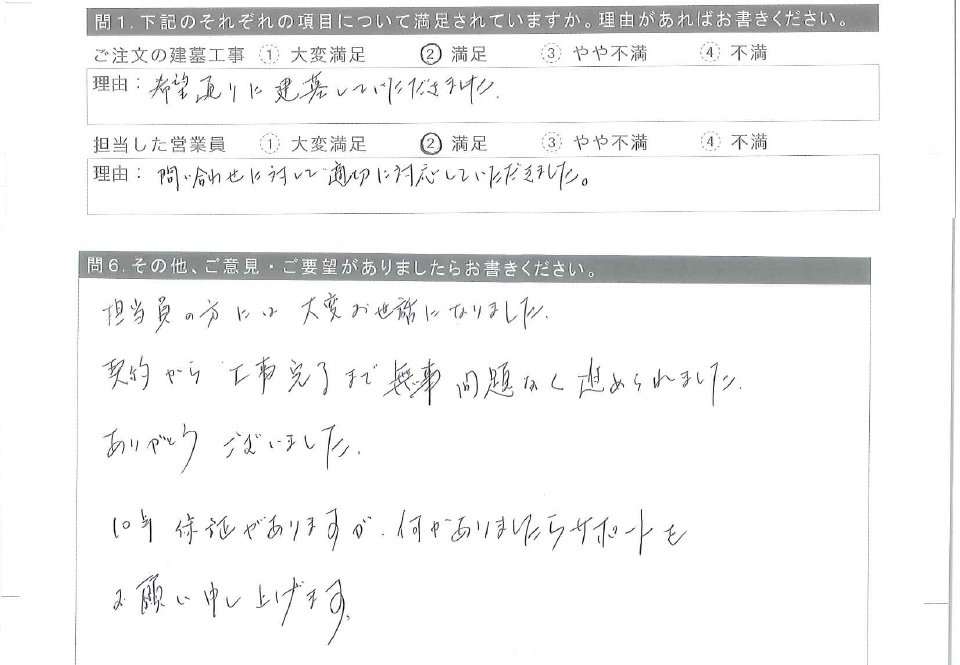 問1.下記のそれぞれの項目について満足されていますか。理由があればお書きください。
ご注文の建墓工事 ① 大変満足 ② 満足 ③ やや不満 ④ 不満
理由：希望通りに建墓していただきました.
担当した営業員 ① 大変満足 ② 満足 ③ やや不満 ④ 不満
理由：問い合わせに対して適切に対応していただきました。
問6.その他、ご意見・ご要望がありましたらお書きください。
担当員の方には大変お世話になりました.
契約から工事完了まで無事問題なく進められました.
ありがとうございました.
10年保証がありますが、何かありましたらサポートを
お願い申し上げます.